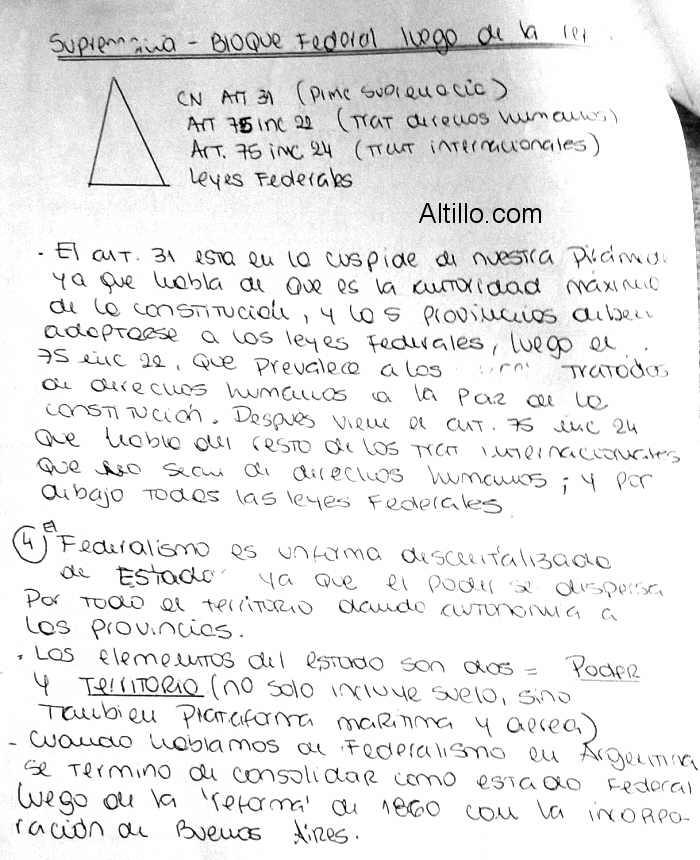 Supremacia - BloQue Federal luego de la
CN Art 31 (Pime supremacia)
Art 75 inc 22 (Trat direcuos humanos)
Art. 75 inc. 24 (Trat internacionales)
Leyes Federales
Altillo.com
· El art. 31 esta en la cuspide de nuestra
ya que habla de que es la autoridad máxima
de la constitución, y las provincias deben
adaptarse a las leyes federales, luego el
75 inc 22, que prevalece a los tratados
de derechos humanos a la Paz de la
constitución. Despues viene el art. 75 inc 24
que habla del resto de los trat internacionales
que no sean de direcuos humanos; y por
debajo todas las leyes Federales.
4 El Federalismo es unforma descentalizado
de Estado ya que el poder se dispersa
Por todo el territorio dando autonomia a
las provincias.
· Los elementos del estado son dos = Poder
y Territorio (no solo incluye suelo, sino
tambien plataforma maritima y aerea)
- Cuando hablamos de Federalismo en Argentina
se termino de consolidar como estado Federal
luego de la 'reforma' de 1860 con la incorpo-
ración de Buenos Aires.